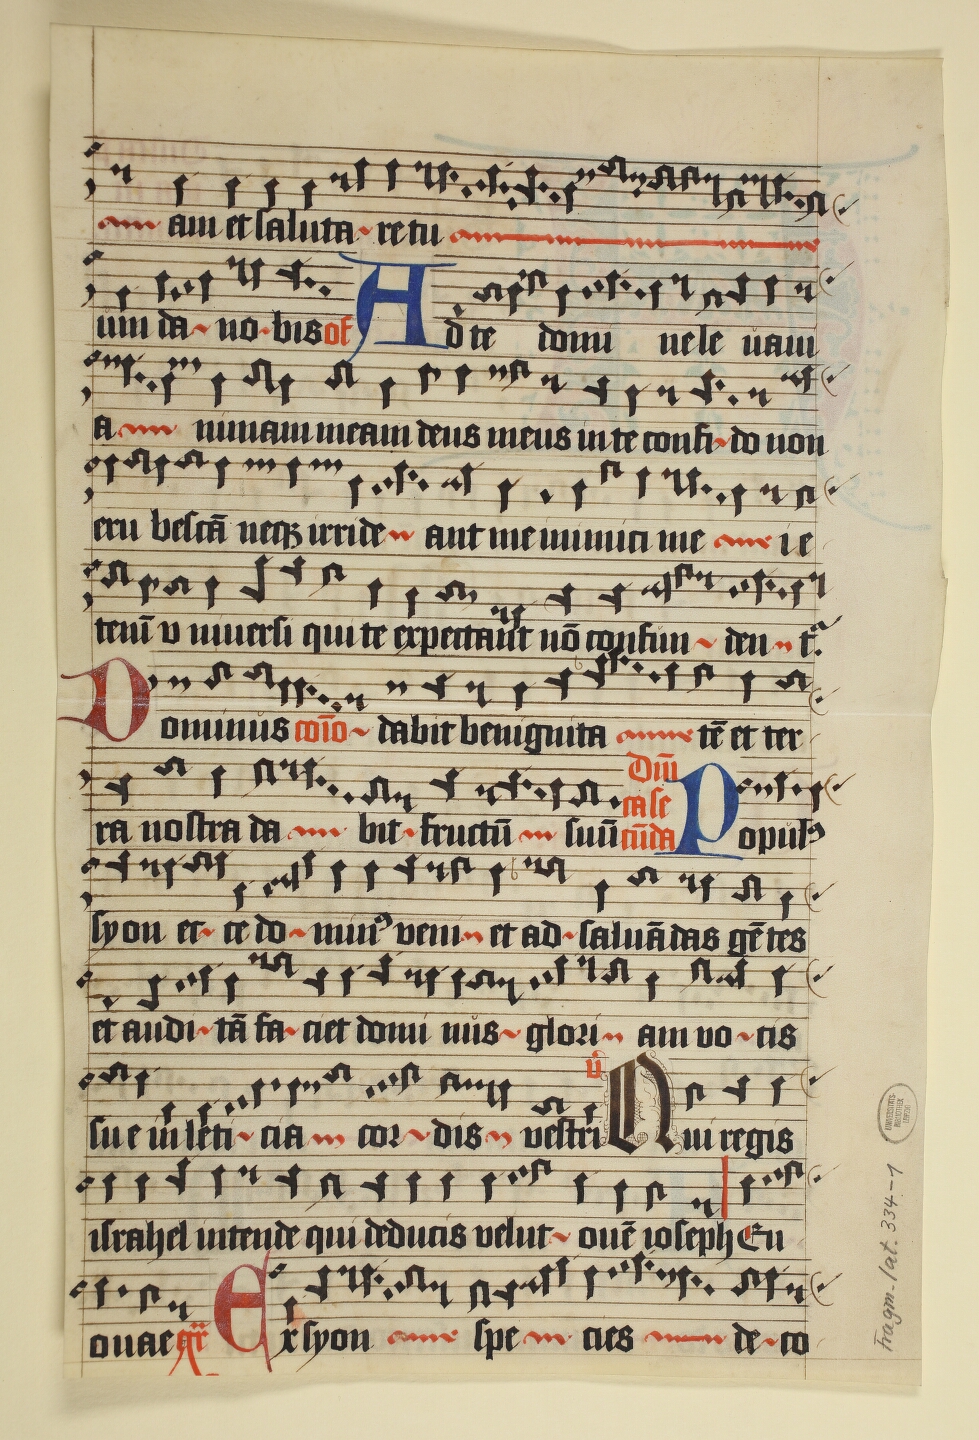 am et saluta re tu
um da no bis of Ad te domi ne le uaui
a nimam meam deus meus in te confi do non
eru bescā neqꝫ irride ant me inimici me i e
tenim v niuersi qui te expectant nō confun den t᷑.
Dominus com̄o dabit benignita tē et ter
ra nostra da bit fructū suū Populꝰ
Dn̄i
ca se
cūda
syon ec ce do minꝰ veni et ad saluādas gētes
et audi tā fa ciet domi nus glori am vo cis
su e in leti cia cor dis vestri v̄ Qui regis
israhel intende qui deducis velut ouē ioseph Eu
ouae gr̄ Ex syon spe cies de co
UNIVERSITÄTS-
BIBLIOTHEK
LEIPZIG
Fragm. lat. 334-1